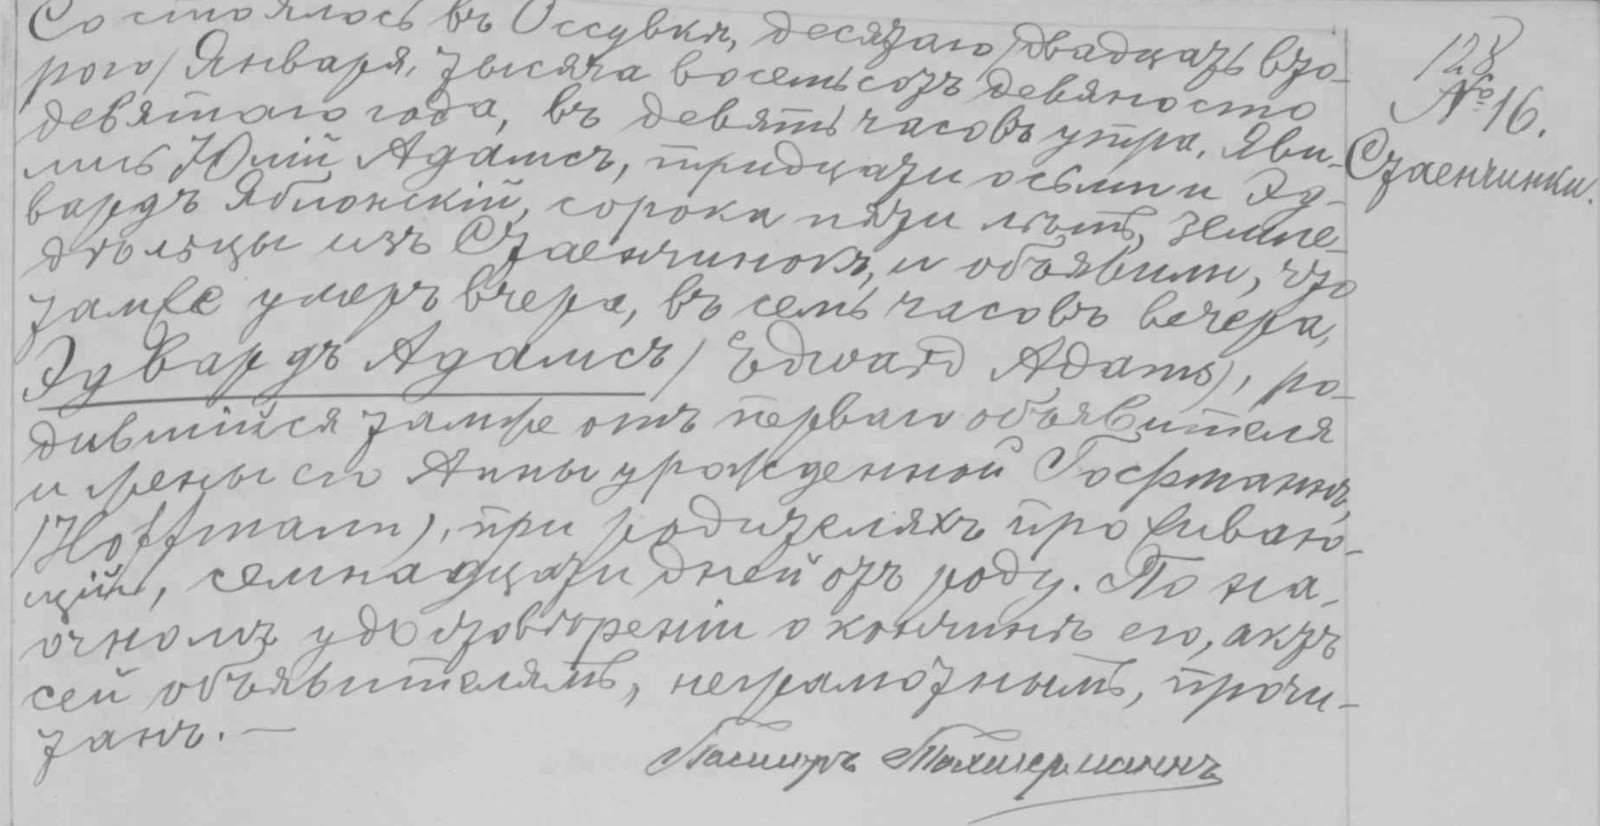 Состоялось въ Оссувкѣ, десятаго /двадцать вто-
рого/ Января, тысяча восемьсотъ девяносто
девятаго года, въ девять часовъ утра. Яви-
лись Юлій Адамсъ, тридцати осьми и Эд-
вардъ Яблонскій, сорока пяти лѣтъ, земле-
дѣльцы изъ Стаенчинокъ, и объявили, что
тамже умеръ вчера, въ семь часовъ вечера,
Эдвардъ Адамсъ /Edward Adams/, ро-
дившійся тамже отъ перваго объявителя
и жены его Анны урожденной Гофманнъ
/Hoffmann/, при родителяхъ проживаю-
щій, семнадцати дней отъ роду. По на-
очномъ удостовѣреніи о кончинѣ его, актъ
сей объявителямъ, неграмотнымъ, прочи-
танъ. —
Пасторъ
128
№ 16.
Стаенчинки.